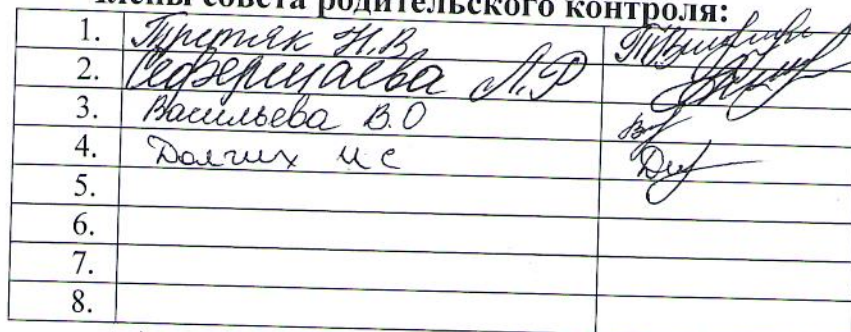 Члены совета родительского контроля:
1. Третяк Н.В
2. Л.Р
3. Васильева В.О
4. Долгих И С
5.
6.
7.
8.